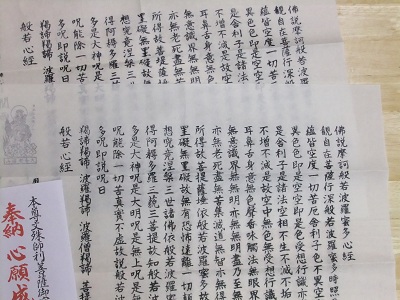 佛説摩訶般若波羅
觀自在菩薩行深般
蘊皆空度一切苦厄
異色色即是空空即
是舍利子是諸法空
不增不減是故空中
耳鼻舌身意無色
無意識界無無明
亦無老死盡無苦集
所得故菩提薩埵
罣礙無罣礙故無
想究竟涅槃三世
得阿耨多羅三
多是大神呪是
呪能除一切苦
多呪即説呪曰
羯諦羯諦 波羅
般若心經
佛説摩訶般若波羅蜜多心經
觀自在菩薩行深般若波羅蜜多時照
蘊皆空度一切苦厄舍利子色不異空
異色色即是空空即是色受想行識
是舍利子是諸法空相不生不滅不垢
不增不減是故空中無色無受想行識
耳鼻舌身意無色聲香味觸法無眼界
無意識界無無明亦無無明盡乃至無
亦無老死盡無苦集滅道無智亦無得
所得故菩提薩埵依般若波羅蜜多故
罣礙無罣礙故無有恐怖遠離一切顛
想究竟涅槃三世諸佛依般若波羅蜜
得阿耨多羅三藐三菩提故知般若波
多是大神呪是大明呪是無上呪是無
呪能除一切苦真實不虚故説般若波
多呪即説呪曰
羯諦羯諦 波羅羯諦 波羅僧羯諦 菩提
般若心經
本尊文殊師利菩薩御
奉納 心願成